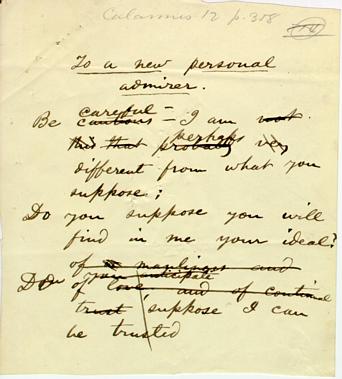 Calamus 12 p. 358
To a new personal
admirer.
careful –
Be cautious – I am not
perhaps
this that probably very
different from what you
suppose;
Do you suppose you will
find in me your ideal?
of manliness and
you anticipate
Do
of love and of continual
trust, suppose I can
be trusted